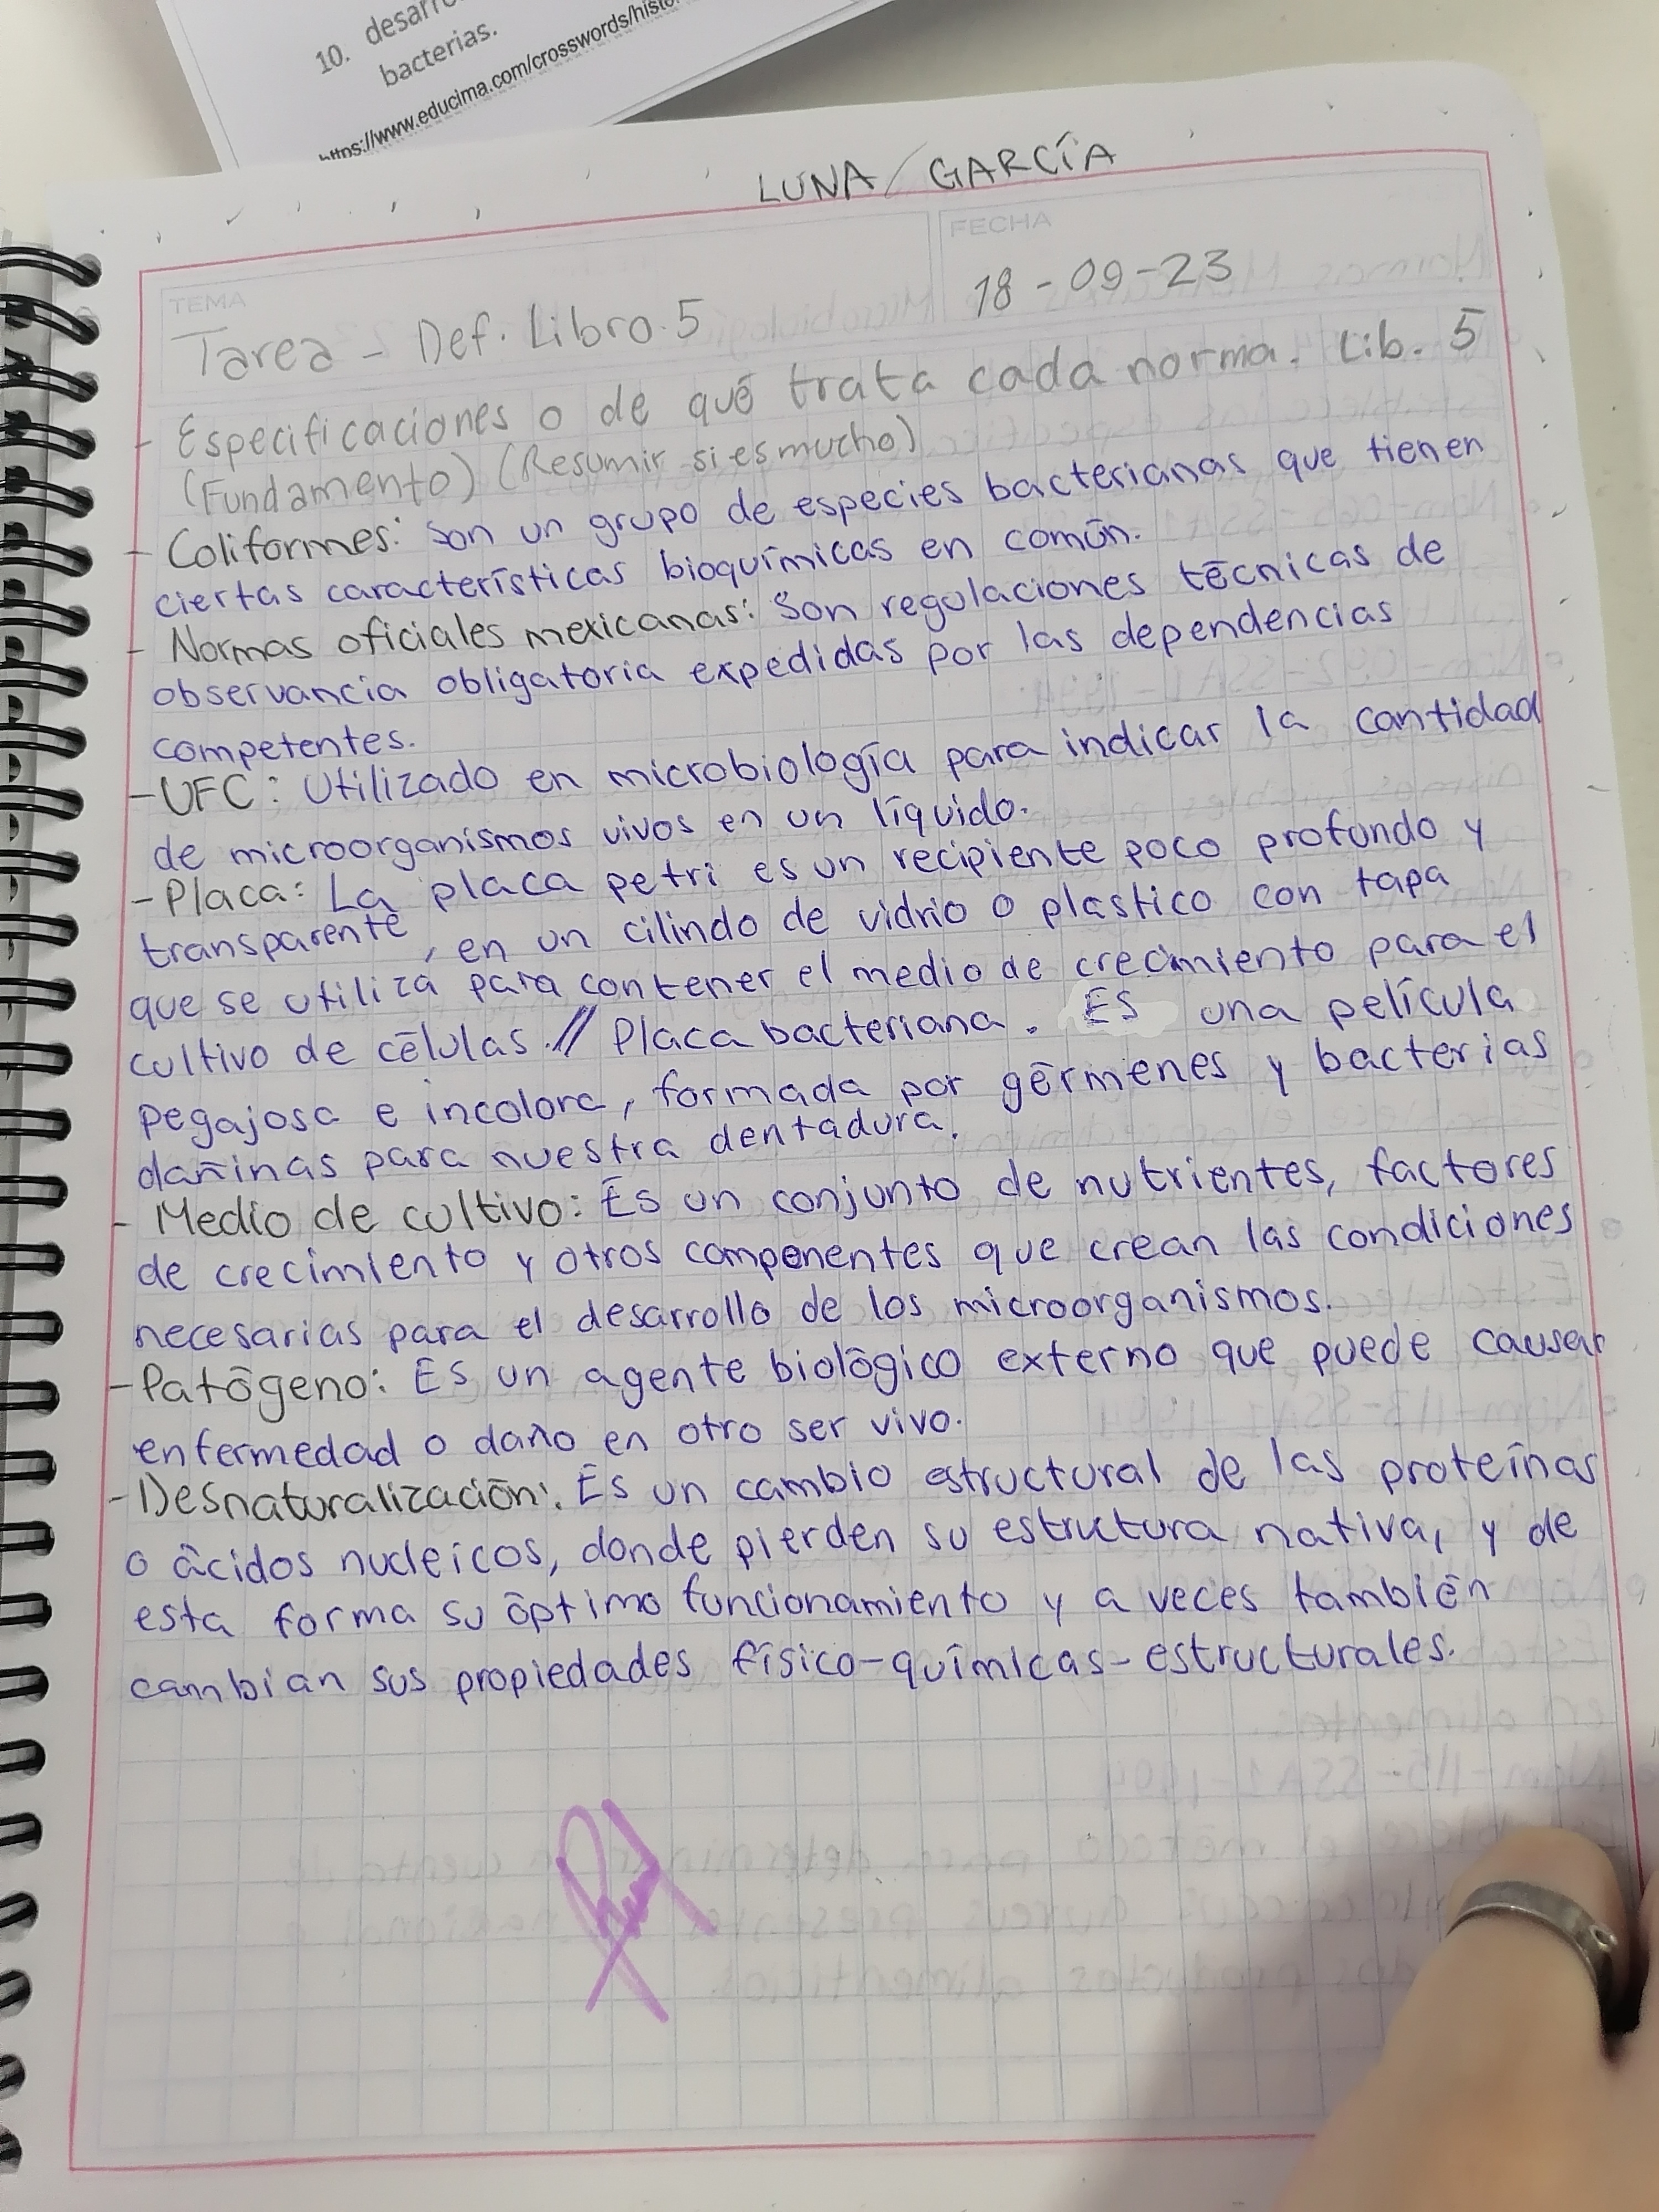 10. desarro
bacterias.
https://www.educima.com/crosswords/histo
LUNA GARCÍA
TEMA
FECHA
18-09-23
Tarea - Def. Libro.5
- Especificaciones o de qué trata cada norma. Lib. 5
(Fundamento) (Resumir si es mucho)
- Coliformes: Son un grupo de especies bacterianas que tienen
ciertas características bioquímicas en común.
- Normas oficiales mexicanas: Son regulaciones técnicas de
observancia obligatoria expedidas por las dependencias
competentes.
- UFC: Utilizado en microbiología para indicar la cantidad
de microorganismos vivos en un líquido.
- Placa: La placa petri es un recipiente poco profundo y
transparente, en un cilindo de vidrio o plastico con tapa
que se utiliza para contener el medio de crecimiento para el
cultivo de células. // Placa bacteriana. Es una película
pegajosa e incolora, formada por gérmenes y bacterias
dañinas para nuestra dentadura.
- Medio de cultivo: Es un conjunto de nutrientes, factores
de crecimiento y otros componentes que crean las condiciones
necesarias para el desarrollo de los microorganismos.
- Patógeno: Es un agente biológico externo que puede causar
enfermedad o daño en otro ser vivo.
- Desnaturalización: Es un cambio estructural de las proteínas
o ácidos nucleicos, donde pierden su estructura nativa, y de
esta forma su óptimo funcionamiento y a veces también
cambian sus propiedades físico-químicas-estructurales.